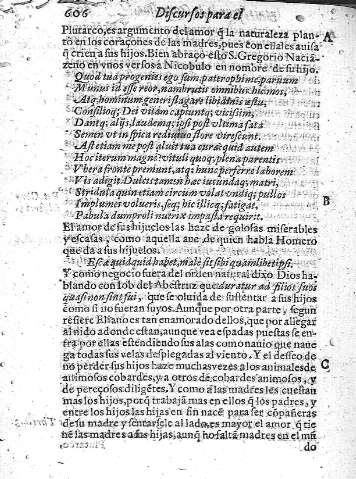 606 Discursos para el
Plutarco, es argumento del amor q̃ la naturaleza plan- A
tò en los coraçones de las madres, pues con el les auisa
q̃ crien a sus hijos. Bien abraço esto S. Gregorio Naciã-
zeno en vnos versos a Nicobulo en nombre de su hijo.
Quod tua progenies ego sum, pater optime, paruum
Munus id esse reor, nam brutis omnibus hic mos,
Atq; hominum generi flagare libidinis æstu,
Consilioq; Dei vitam capiuntq; vicissim,
Dantq; alijs, laudemq;
Semen vt in spica rediuiuo flore virescunt.
Ast etiam me post aluit tua cura; quid autem
Hoc iterum magni? vituli quoq; plena parentis
Vbera fronte premunt, atq; hunc perferre laborem
Vis adigit. Dulce tamen hæc iucundaq; matri,
Stridula quin etiam circum volat vndiq; pullos B
Implumes volucris, seq; hic illicq; fatigat,
Pabula dum proli nutrix impasta requirit.
El amor de sus hijuelos las haze de golosas miserables
y escasas, como aquella aue de quien habla Homero
que da a sus hijuelos.
Esca quidquid habet, male sit sibi quamlibet ipsi.
Y como negocio fuera del orden natural dixo Dios ha-
blando con Iob del Abestruz que duratur ad filios suos
quasi non sint sui, que se oluida de sustentar a sus hijos
como si no fueran suyos. Aunque por otra parte, segun
refiere Eliano es tan enamorado dellos, que por allegar
al nido adonde estan, aunque vea espadas puestas se en-
tra por ellas estendiendo sus alas como nauio que naue
ga todas sus velas desplegadas al viento. Y el desseo de
no perder sus hijos haze muchas vezes a los animales de C
animosos cobardes, y a otros de cobardes animosos, y
de pereçosos diligẽtes. Y como a las madres les cuestan
mas los hijos, porq̃ trabajã mas en ellos q̃ los padres, y
entre los hijos las hijas en fin nacẽ para ser cõpañeras
de su madre y sentarsele al lado, es mayor el amor q̃ tie
nẽ las madres a sus hijas, aunq̃ no faltã madres en el mũ
do